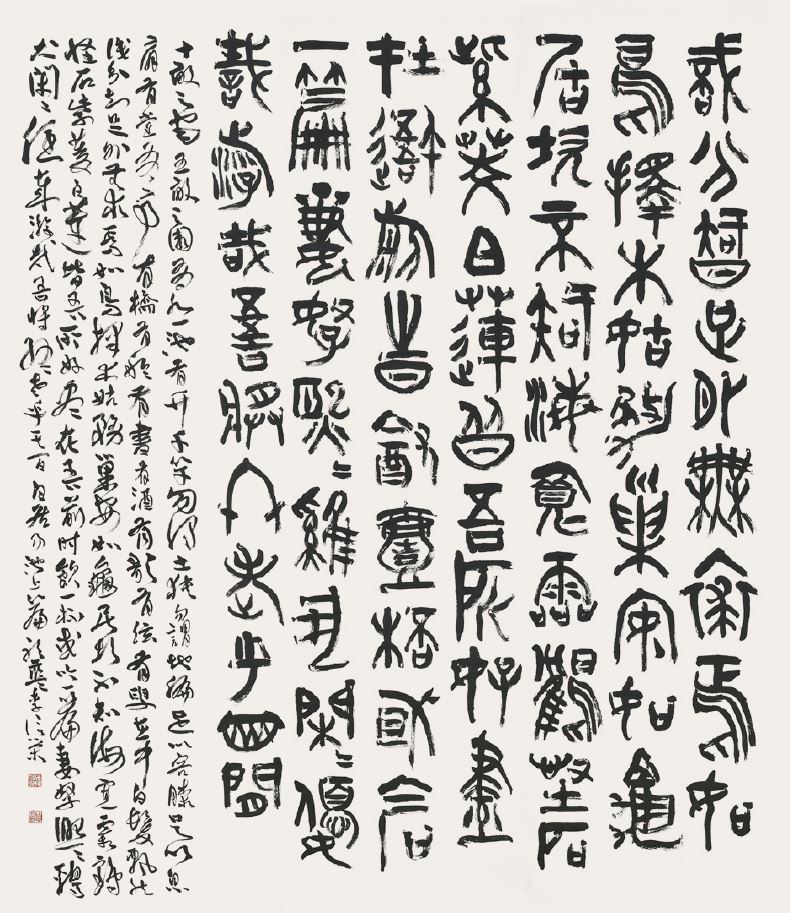 識分知足外無求焉如
鳥擇木姑務巢安如龜
居坎不知海寬靈鶴怪石
紫菱白蓮皆吾所好盡
在吾前時飲壹桮或吟
一篇妻孥熙〻雞犬閑〻優
哉游哉吾將終老乎其間
十畝之宅五畝之園有水一池有竹千竿勿謂土狹勿謂地偏足以容膝足以息
肩有堂有亭有橋有船有書有酒有歌有弦有叟在中白鬚飄然
識分知足外無求焉如鳥擇木姑務巢安如龜居坎不知海寬靈鶴
怪石紫菱白蓮皆吾所好盡在吾前時飲一杯或吟一篇妻孥熙〻雞
犬閑〻優哉游哉吾將終老乎其間白居易池上篇李榮